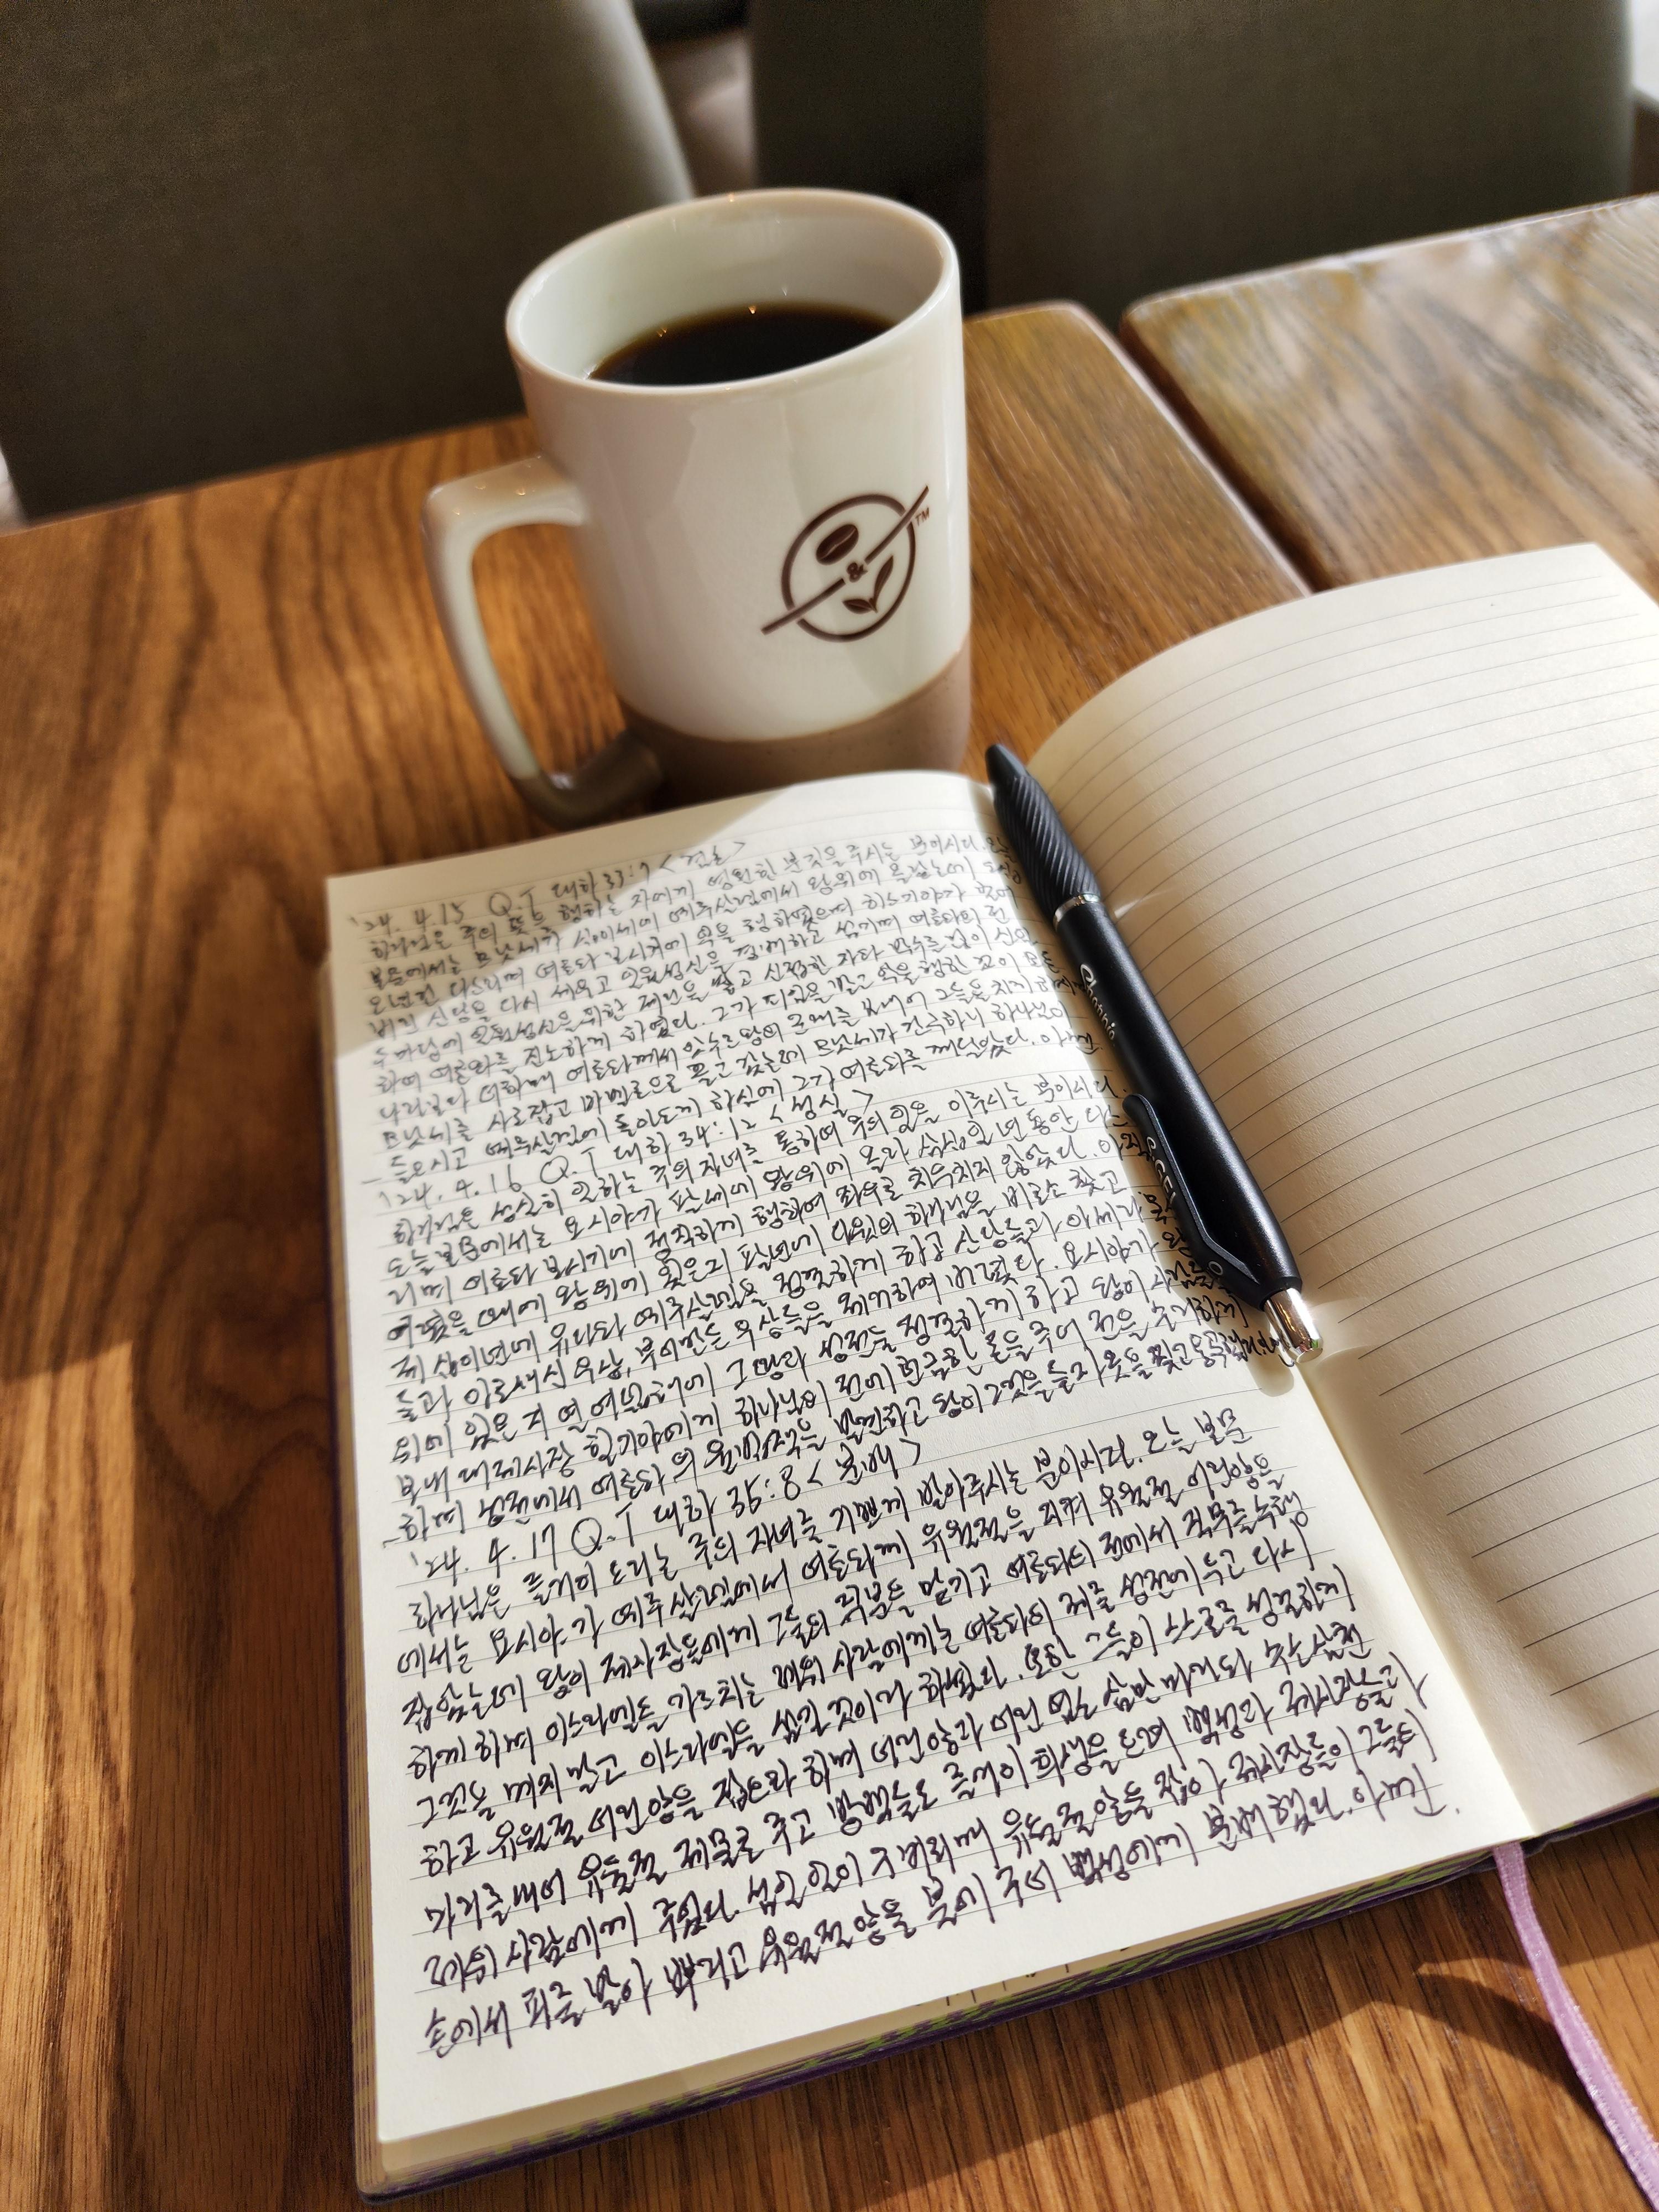 &
TM
Sharpie
'24. 4. 15 Q.T 대하 33:9
하나님은 주의 뜻을 행하는 자에게 영원한 것을 주시는 분이시다.
본문에서는 므낫세가 십이세에 예루살렘에서 왕위에 올랐는데
오년간 다스리며 여호와 보시기에 악을 행하였으며 히스기야가
버린 산당을 다시 세우고 일월성신을 경배하고 섬기며 여호와의 전
두 마당에 일월성신을 위한 제단을 쌓고 신접한 자와 박수를
하여 여호와를 진노하게 하였다. 그가 악을 행한 것이
더하매 여호와께서 앗수르 왕의 군대를 보내어 그들을 치게
므낫세를 사로잡고 바벨론으로 끌고 갔는데 므낫세가 간구하니 하나님이
들으시고 예루살렘에 돌아오게 하심에 그가 여호와를 깨달았다. 아멘
'24. 4. 16 Q.T 대하 34:12 <성실>
하나님은 성실히 일하는 주의 자녀를 통하여 주의 일을 이루시는 분이시다.
오늘 본문에서는 요시야가 팔세에 왕위에 올라 삼십일 년 동안
리며 여호와 보시기에 정직하게 행하여 좌우로 치우치지 않았다.
어렸을 때에 왕위에 있은지 팔년에 다윗의 하나님을 비로소 찾고
제 십이년에 유다와 예루살렘을 정결하게 하고 산당들과 아세라 목
들과 아로새긴 우상, 부어만든 우상들을 제거하여 버렸다. 요시야가
위에 있은 지 열여덟째 해에 그 땅과 성전을 정결하게 하고
보내 대제사장 힐기야에게 하나님의 전에 헌금한 돈을 주어 전을 수리하게
하며 성전에서 여호와의 율법책을 발견하고 왕이 그것을 듣자 옷을 찢고 통곡했다.
'24. 4. 17 Q.T 대하 35:8 <분배>
하나님은 즐거이 드리는 주의 자녀를 기쁘게 받아주시는 분이시다. 오늘 본문
에서는 요시야가 예루살렘에서 여호와께 유월절을 지켜 유월절 어린양을
잡았는데 왕이 제사장들에게 그들의 직분을 맡기고 여호와의 전에서 직무를 수행
하게 하며 이스라엘을 가르치는 레위 사람에게는 여호와의 궤를 성전에 두고 다시
그것을 메지 말고 이스라엘을 섬길 것이라 하였다. 또한 그들이 스스로 성결하게
하고 유월절 어린 양을 잡으라 하며 어린양과 어린 염소 삼만 마리와 수소 삼천
마리를 내어 유월절 제물로 주고 방백들도 즐거이 희생을 드려 백성과 제사장들과
레위 사람에게 주었다. 섬길 일이 구비되매 유월절 양을 잡아 제사장들이 그들의
손에서 피를 받아 뿌리고 유월절 양을 모든 백성에게 분배했다. 아멘